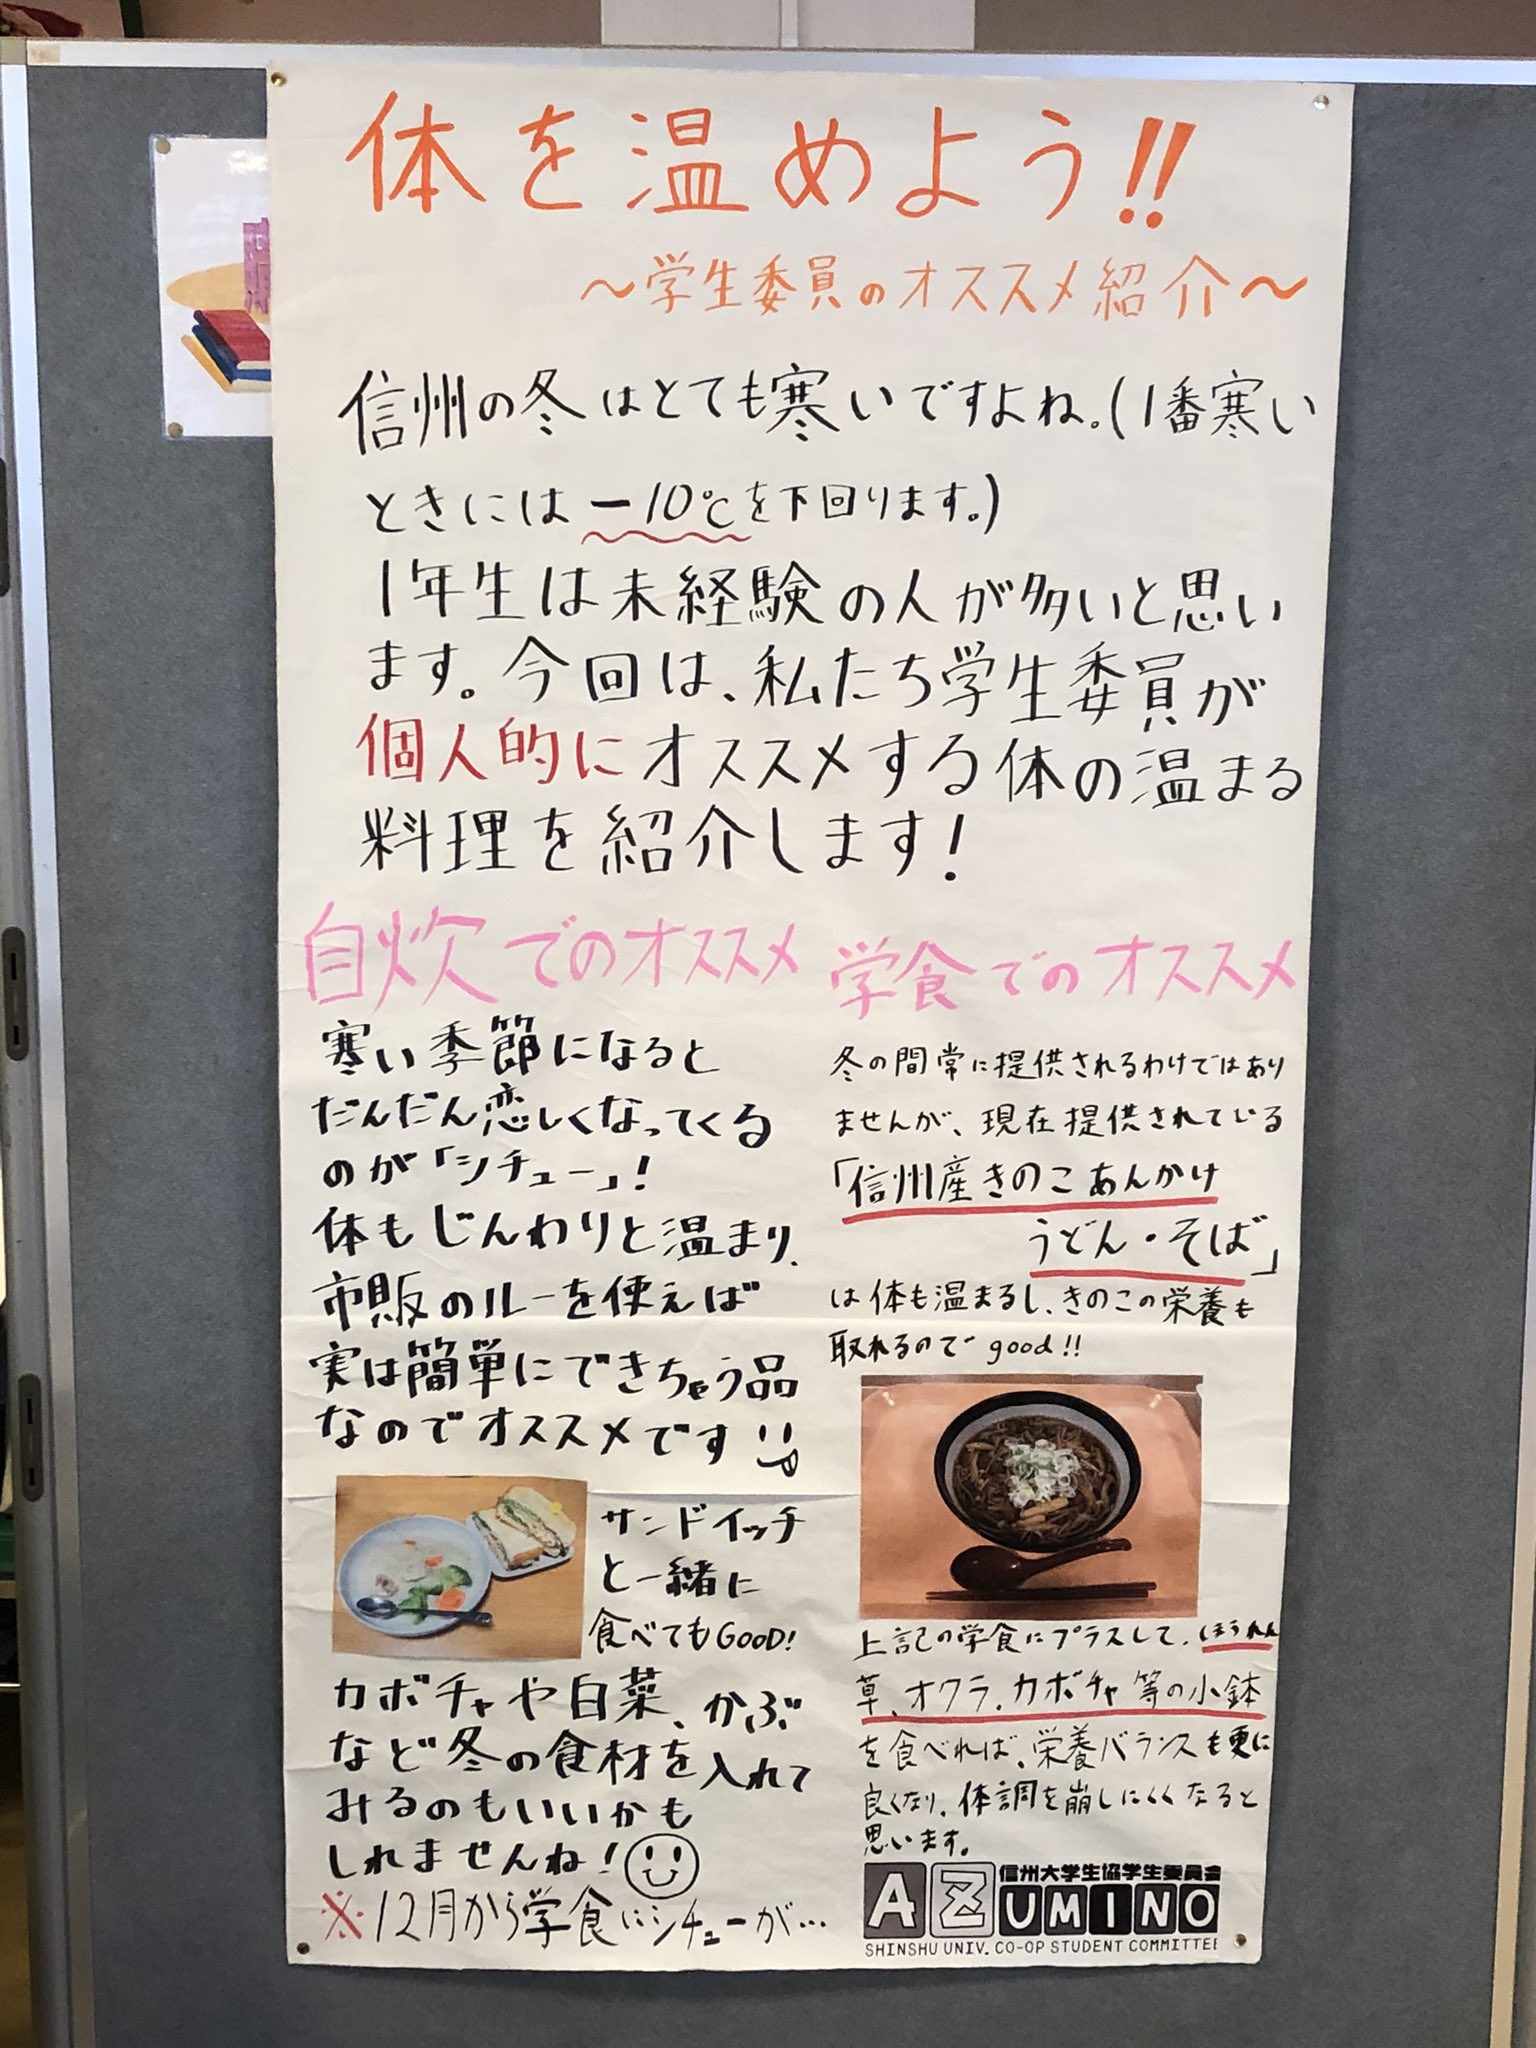 体を温めよう!!
～学生委員のオススメ紹介～
信州の冬はとても寒いですよね。(1番寒い
ときには-10℃を下回ります。)
1年生は未経験の人が多いと思い
ます。今回は、私たち学生委員が
個人的にオススメする体の温まる
料理を紹介します!
自炊でのオススメ
寒い季節になると
だんだん恋しくなってくる
のが「シチュー」!
体もじんわりと温まり、
市販のルーを使えば
実は簡単にできちゃう品
なのでオススメです
サンドイッチ
と一緒に
食べてもGOOD!
カボチャや白菜、かぶ
など冬の食材を入れて
みるのもいいかも
しれませんね!
※12月から学食にシチューが…
学食でのオススメ
冬の間常に提供されるわけではあり
ませんが、現在提供されている
「信州産きのこあんかけ
うどん・そば」
は体も温まるし、きのこの栄養も
取れるのでgood!!
上記の学食にプラスして、ほうれん
草、オクラ、カボチャ等の小鉢
を食べれば、栄養バランスも更に
良くなり、体調を崩しにくくなると
思います。
信州大学生協学生委員会
AZUMINO
SHINSHU UNIV. CO-OP STUDENT COMMITTEE